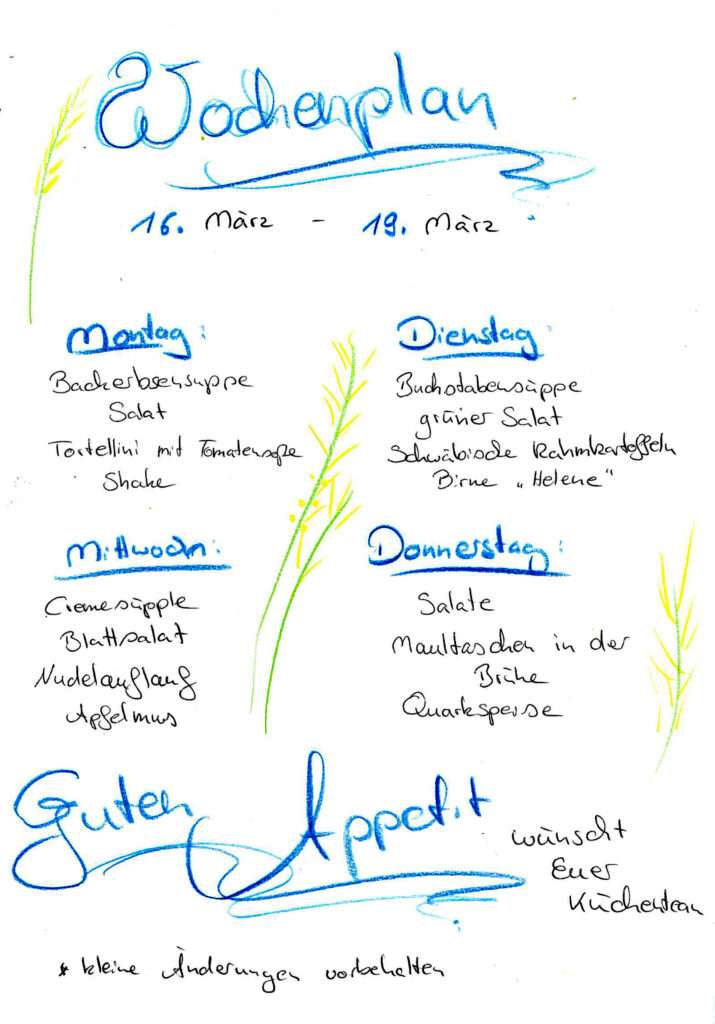 Wochenplan
16. März - 19. März
Montag:
Backerbsensuppe
Salat
Tortellini mit Tomatensoße
Shake
Dienstag:
Buchstabensuppe
grüner Salat
Schwäbische Rahmkartoffeln
Birne „Helene"
Mittwoch:
Cremesüpple
Blattsalat
Nudelauflauf
Apfelmus
Donnerstag:
Salate
Maultaschen in der
Brühe
Quarkspeise
Guten Appetit
wünscht
Euer
Küchenteam
* kleine Änderungen vorbehalten